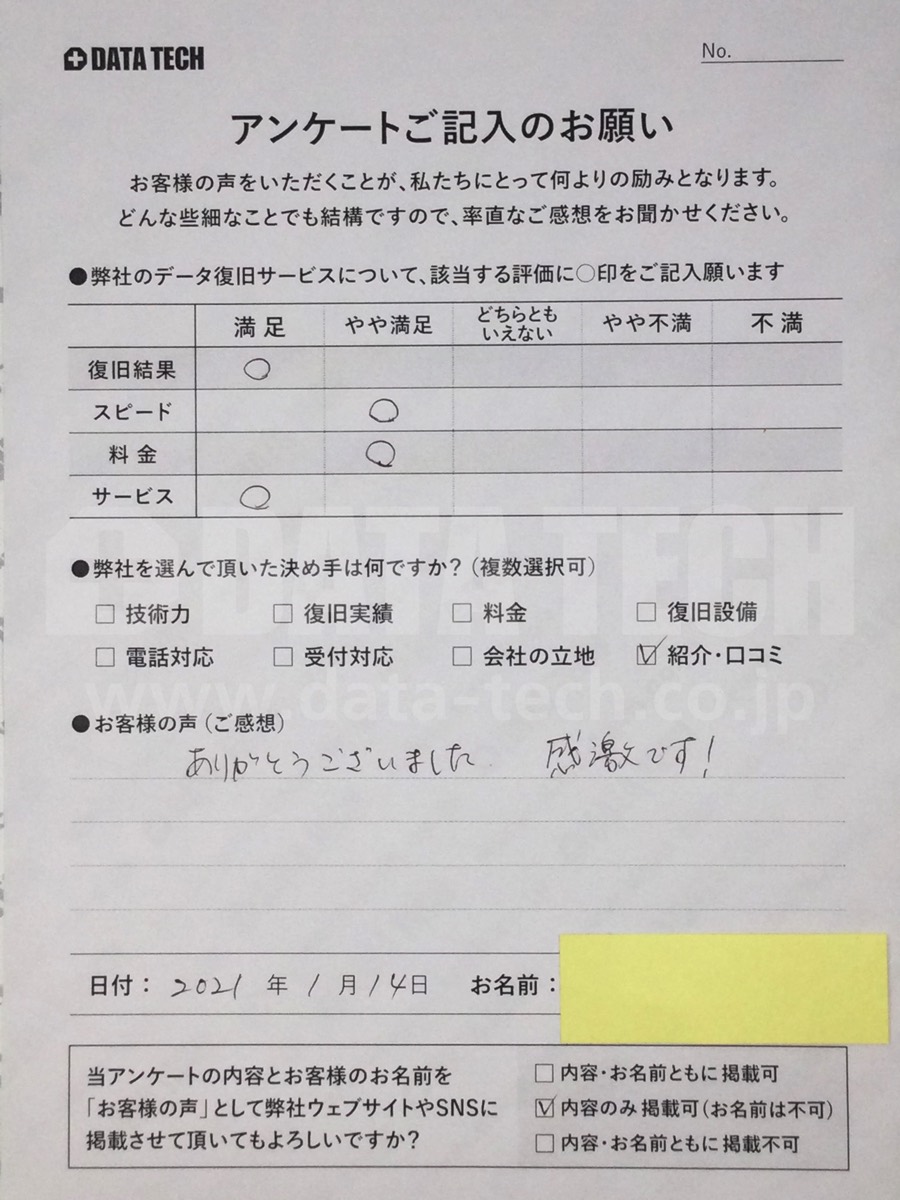 DATA TECH
No.
アンケートご記入のお願い
お客様の声をいただくことが、私たちにとって何よりの励みとなります。
どんな些細なことでも結構ですので、率直なご感想をお聞かせください。
●弊社のデータ復旧サービスについて、該当する評価に○印をご記入願います
満足 やや満足 どちらとも いえない やや不満 不満
復旧結果 ○
スピード ○
料金 ○
サービス ○
DATA TECH
●弊社を選んで頂いた決め手は何ですか?(複数選択可)
□ 技術力 □ 復旧実績 □ 料金 □ 復旧設備
□ 電話対応 □ 受付対応 □ 会社の立地 ☑ 紹介・口コミ
www.data-tech.co.jp
●お客様の声(ご感想)
ありがとうございました 感激です!
日付: 2021 年 1 月 14 日 お名前:
当アンケートの内容とお客様のお名前を
「お客様の声」として弊社ウェブサイトやSNSに
掲載させて頂いてもよろしいですか?
□ 内容・お名前ともに 掲載可
☑ 内容のみ 掲載可(お名前は不可)
□ 内容・お名前ともに 掲載不可